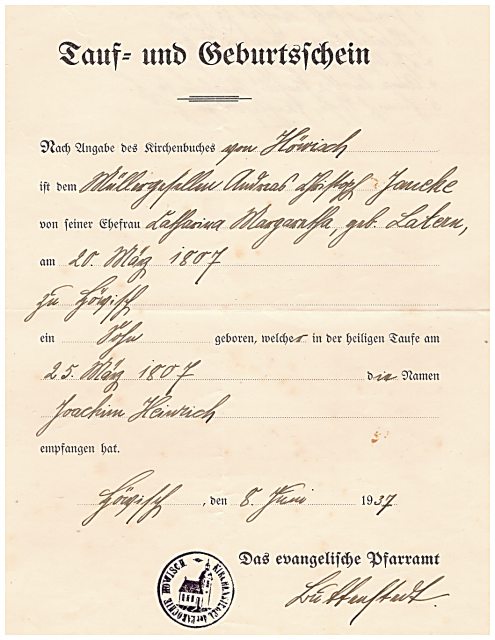 Tauf- und Geburtsschein
Nach Angabe des Kirchenbuches von Höwisch
ist dem Müllergesellen Andreas Christoph Janeke
von seiner Ehefrau Catharina Margaretha, geb. Latern,
am 20. März 1807
zu Höwisch
ein Sohn geboren, welcher in der heiligen Taufe am
25. März 1807 die Namen
Joachim Heinrich
empfangen hat.
Höwisch, den 8. Juni 1937
Das evangelische Pfarramt
Buttenstedt.
KIRCHENSIEGEL der PAROCHIE HÖWISCH